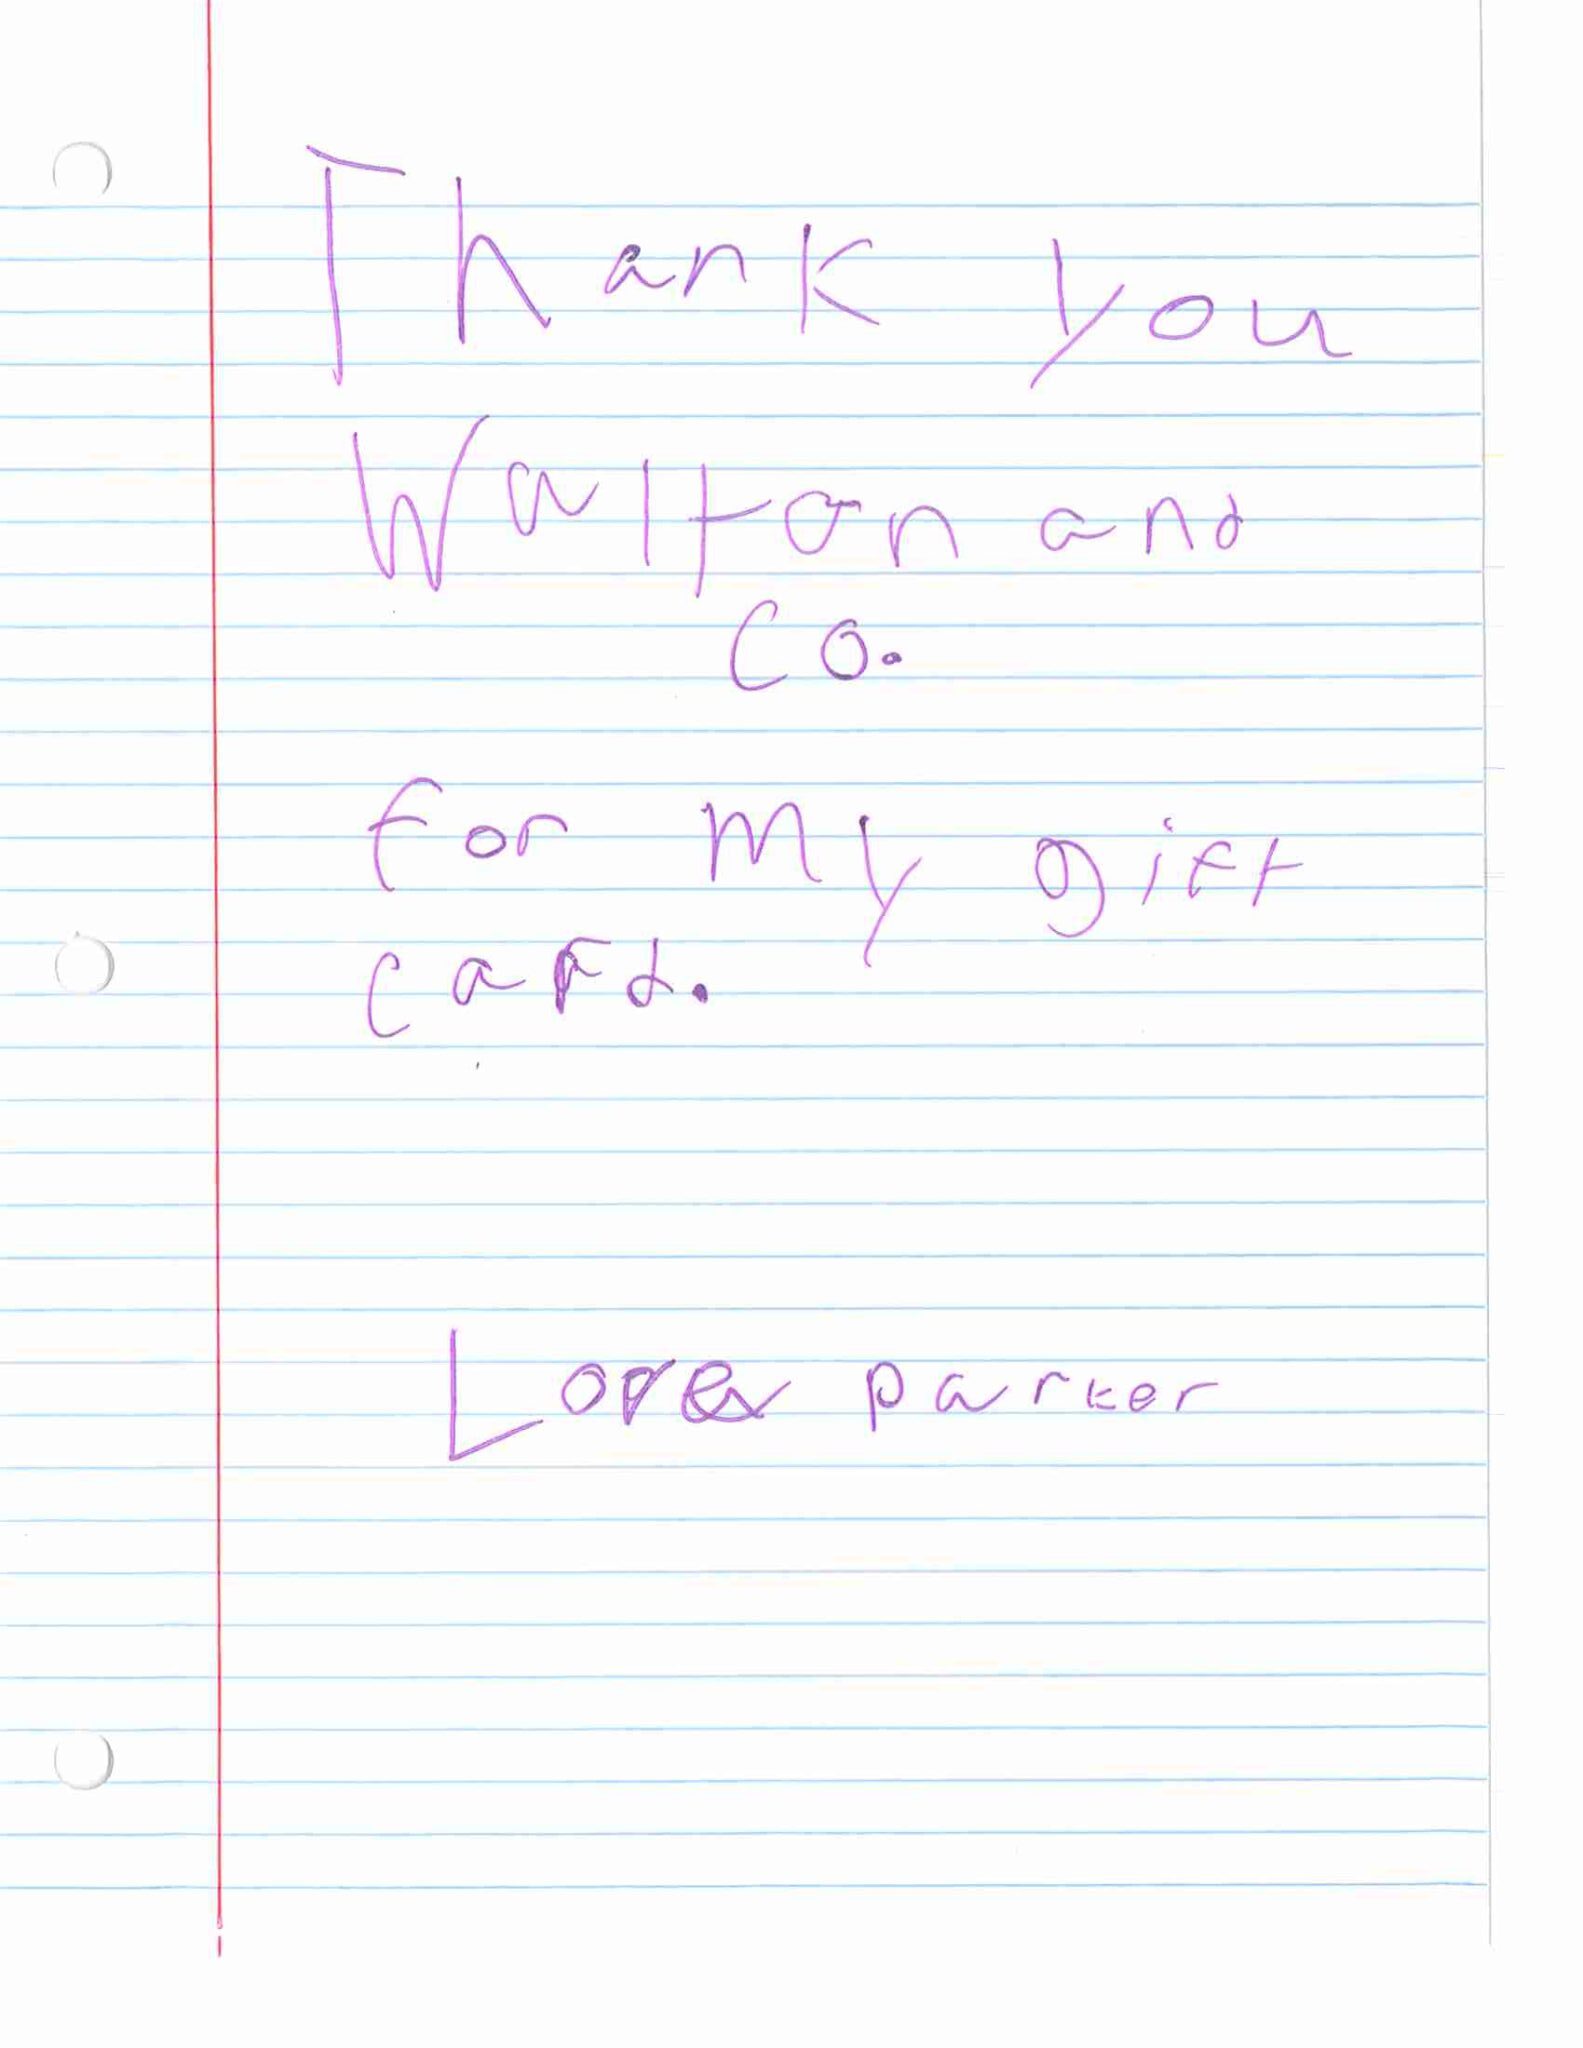 Thank you
Walton and
Co.
for my gift
card.
Love parker